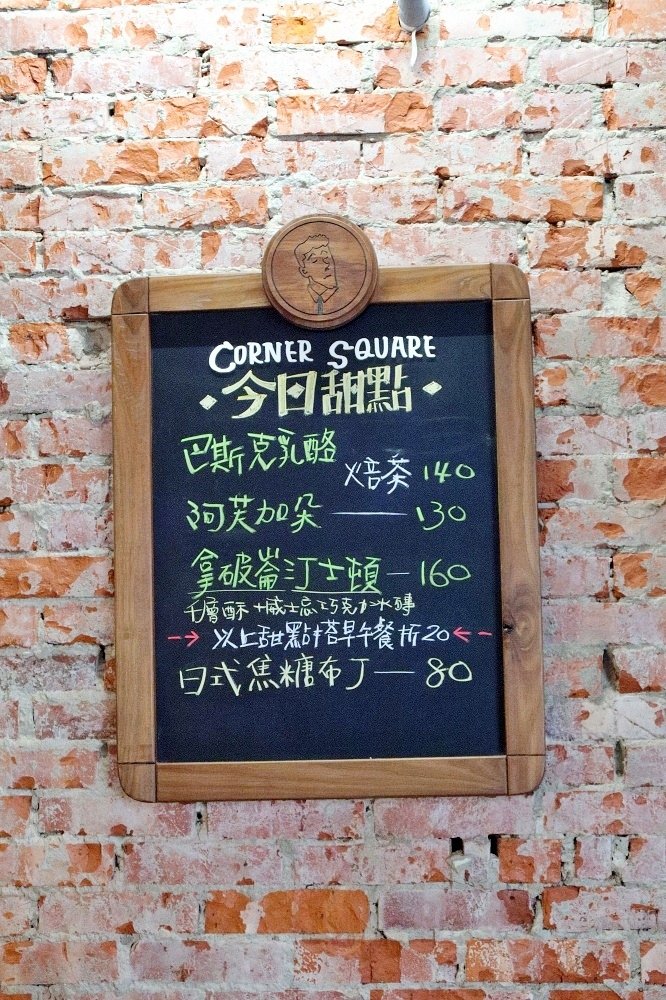 CORNER SQUARE
今日甜點
巴斯克乳酪 焙茶 140
阿芙加朵 — 130
拿破崙汀士頓 — 160
千層酥+威士忌巧克力冰磚
以上甜點搭早午餐折20
日式焦糖布丁 — 80